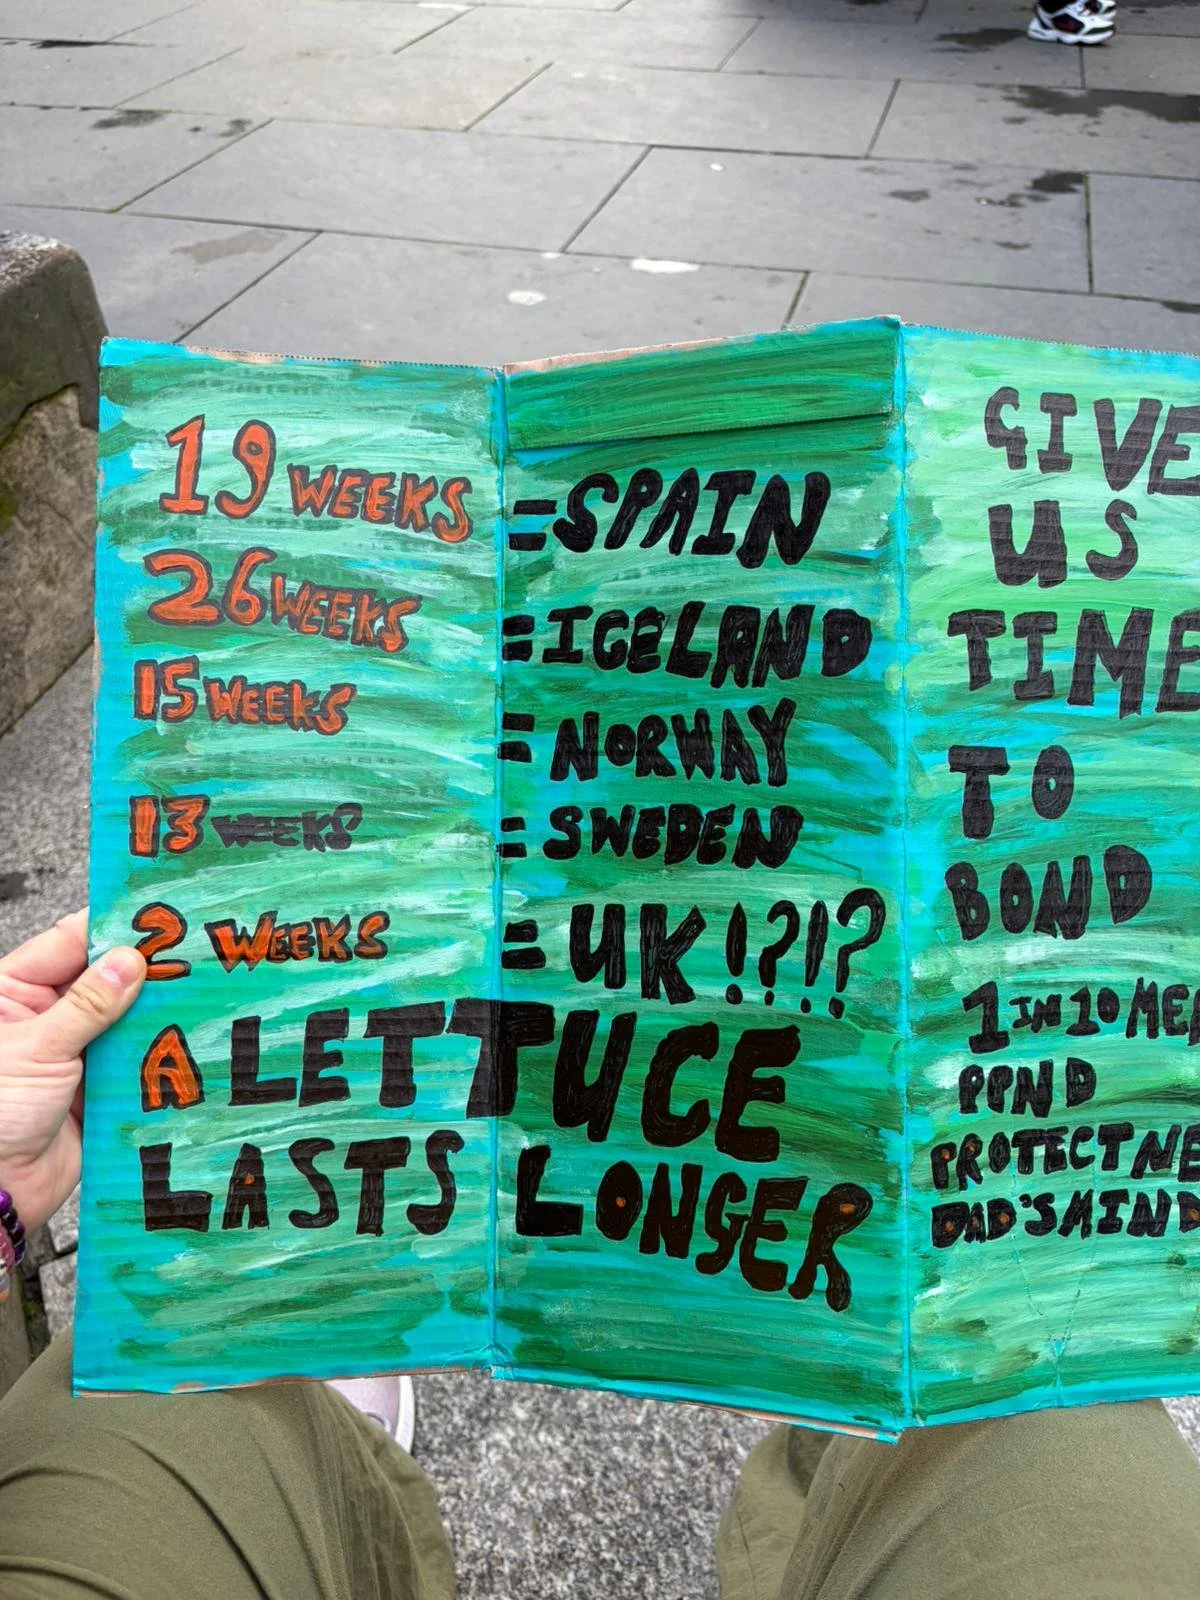 19 WEEKS =SPAIN
26 WEEKS =ICELAND
15 WEEKS = NORWAY
13 WEEKS = SWEDEN
2 WEEKS = UK!?!?
A LETTUCE
LASTS LONGER
GIVE
US
TIME
TO
BOND
1 IN 10 ME
PPND
PROTECT NE
DAD'S MIND